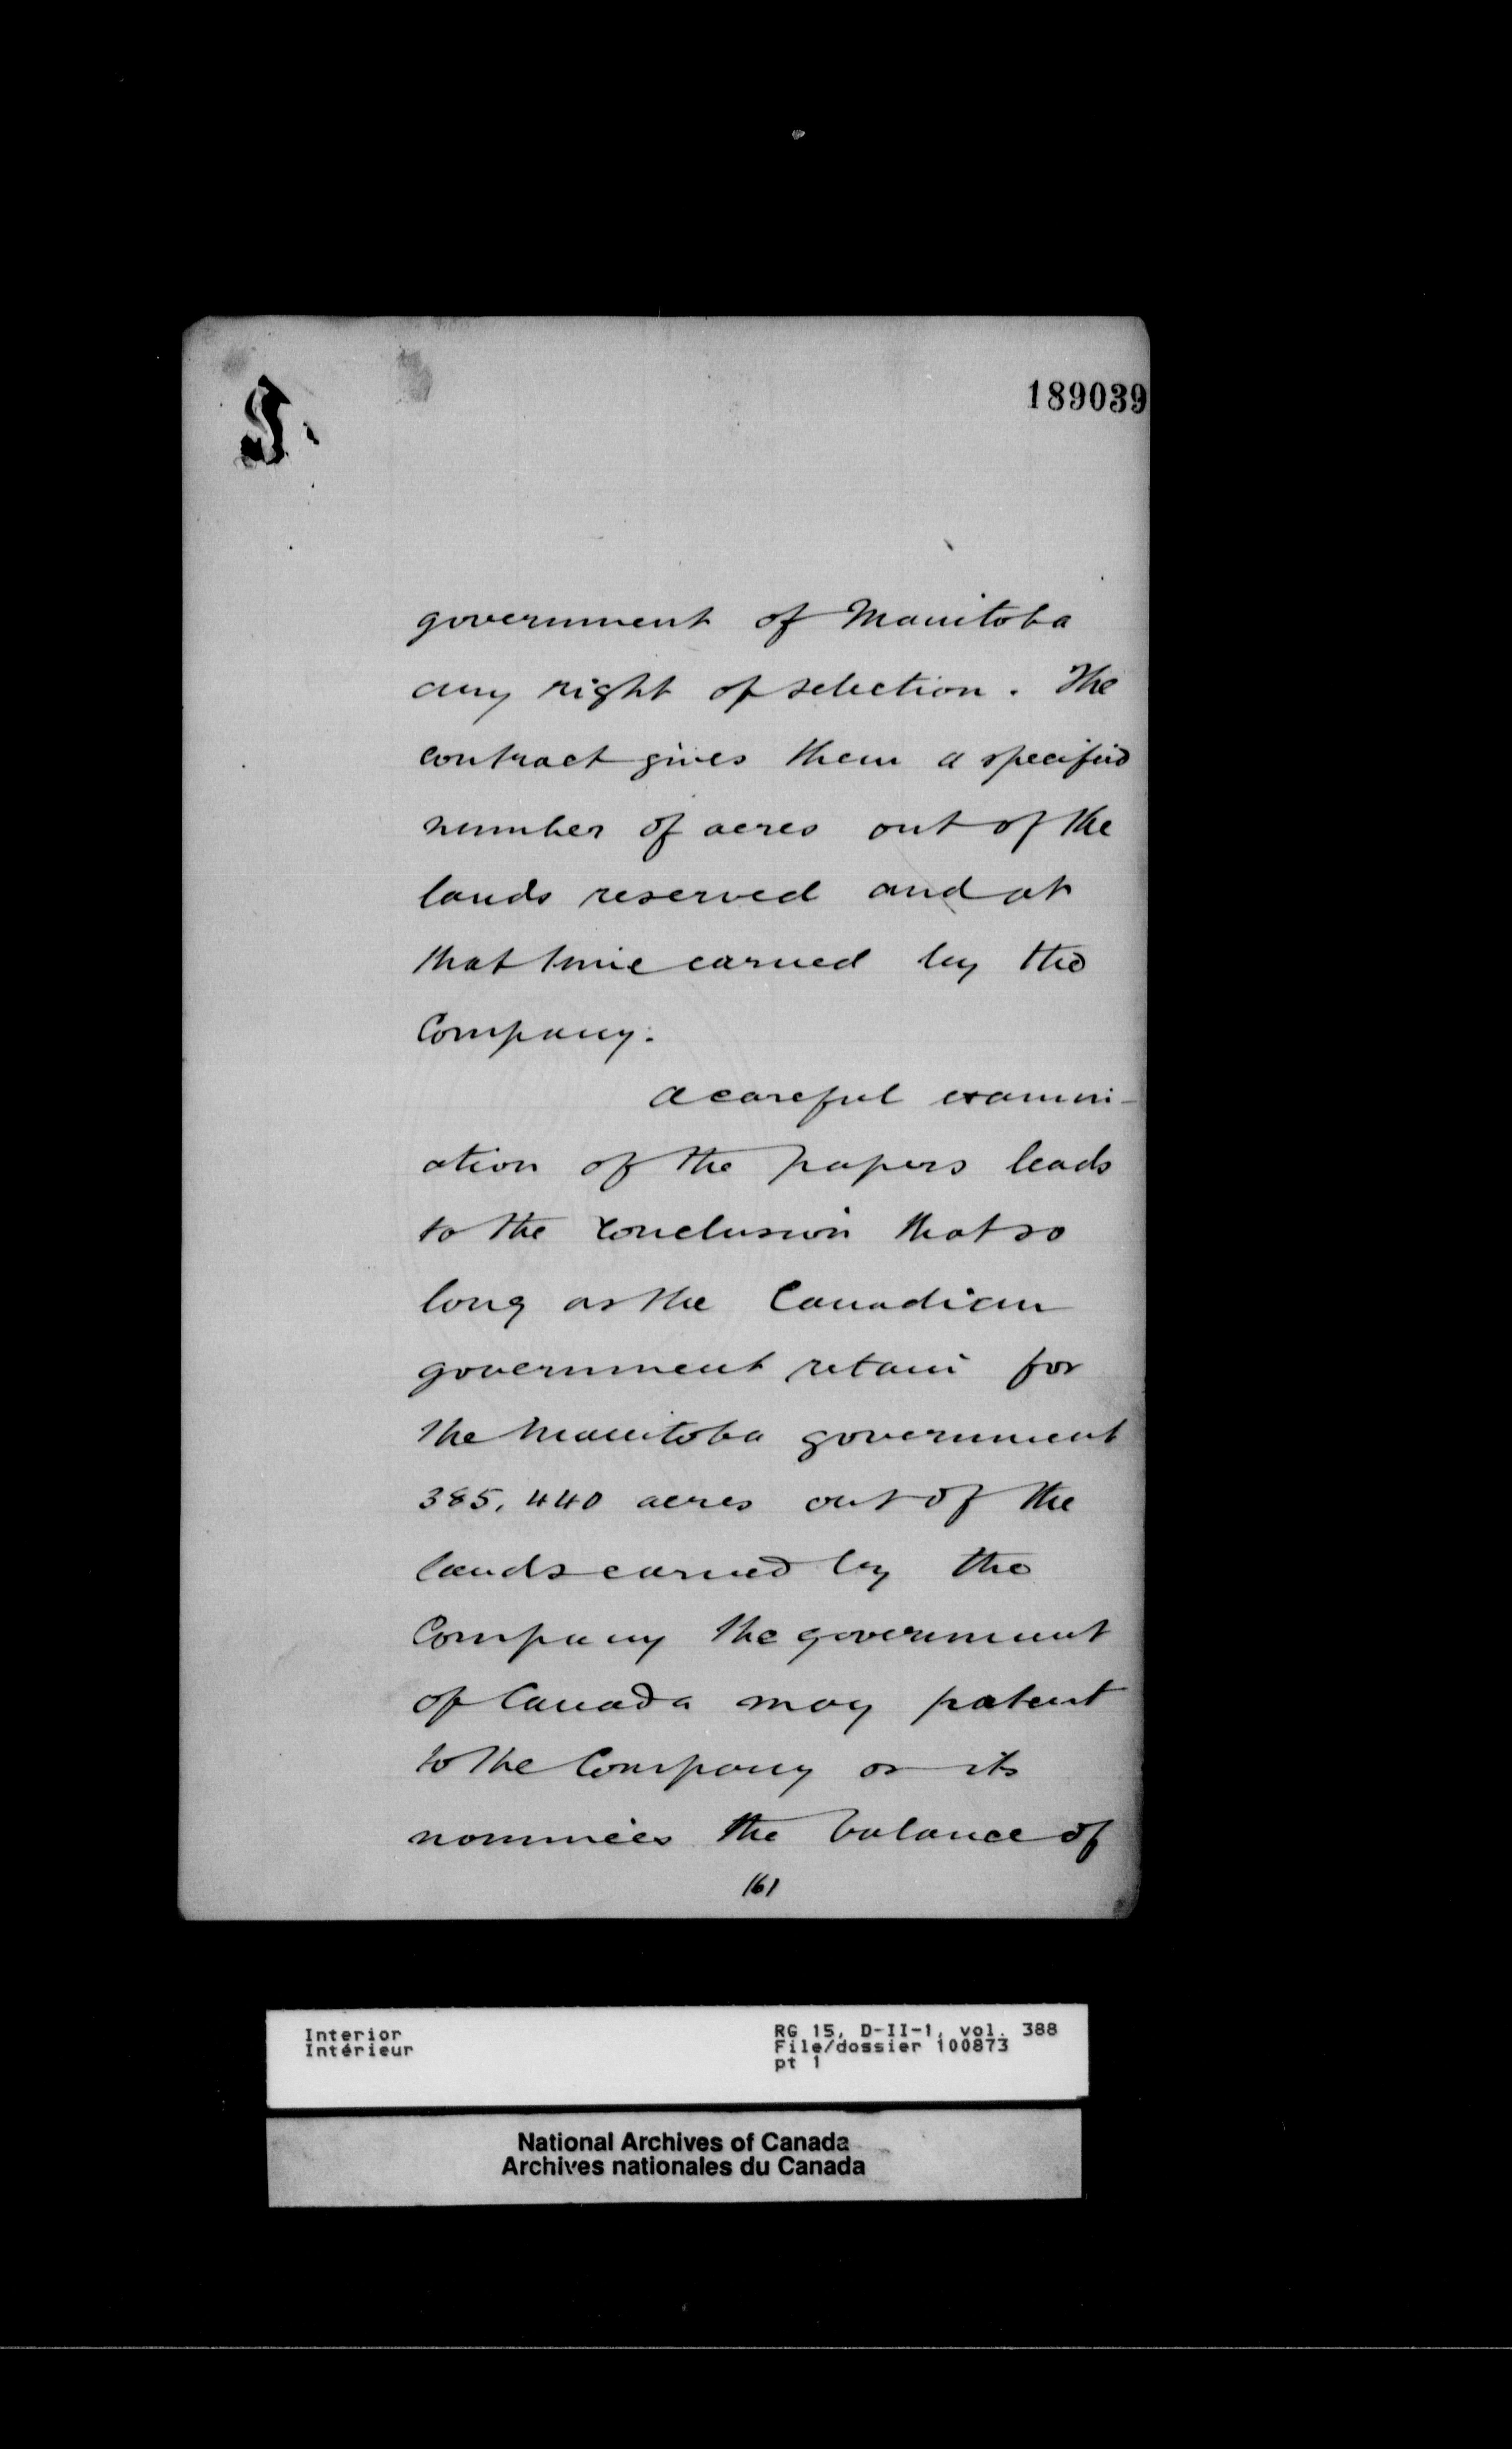 189039
government of Manitoba
any right of selection. The
contract gives them a specified
number of acres out of the
lands reserved and at
that time earned by the
Company.
A careful examin-
ation of the papers leads
to the conclusion that so
long as the Canadian
government retain for
the Manitoba government
385,440 acres out of the
lands earned by the
Company the government
of Canada may patent
to the Company or its
nominees the balance of
161
Interior
Intérieur
RG 15, D-II-1, vol. 388
File/dossier 100873
pt 1
National Archives of Canada
Archives nationales du Canada